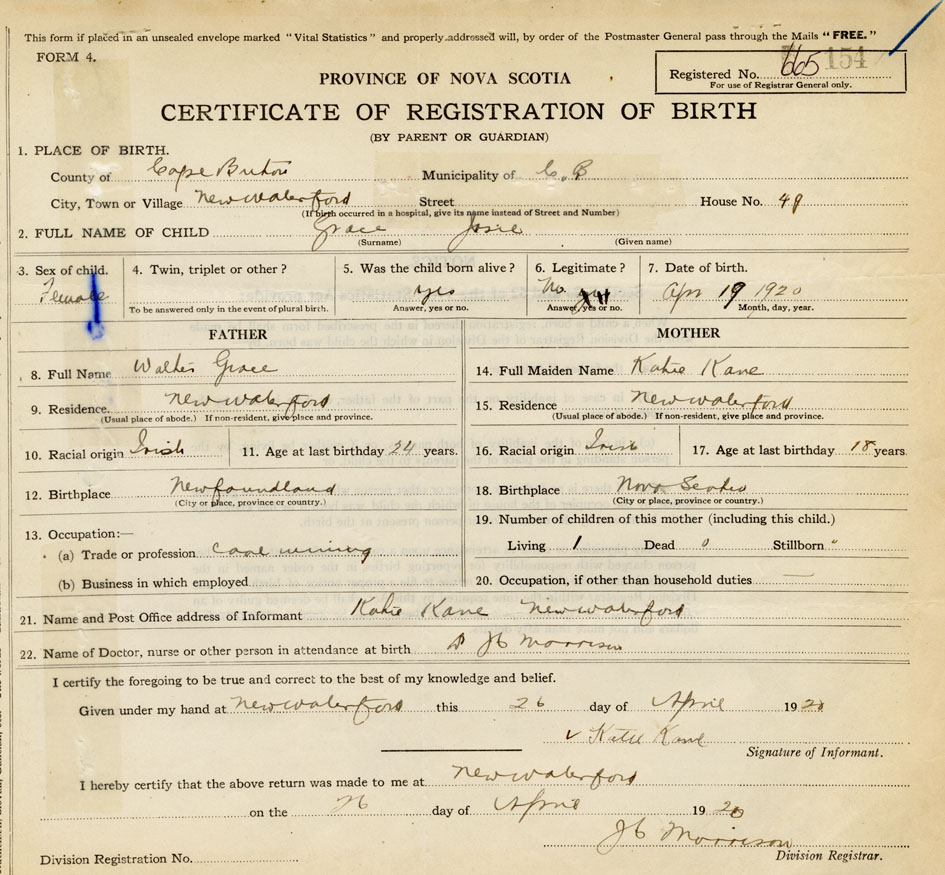 This form if placed in an unsealed envelope marked "Vital Statistics" and properly addressed will, by order of the Postmaster General pass through the Mails "FREE."
FORM 4.
PROVINCE OF NOVA SCOTIA
Registered No. 665 154
For use of Registrar General only.
CERTIFICATE OF REGISTRATION OF BIRTH
(BY PARENT OR GUARDIAN)
1. PLACE OF BIRTH.
County of Cape Breton Municipality of C. B
City, Town or Village New Waterford Street House No. 49
(If birth occurred in a hospital, give its name instead of Street and Number)
2. FULL NAME OF CHILD Grace Josie
(Surname) (Given name)
3. Sex of child. 4. Twin, triplet or other? 5. Was the child born alive? 6. Legitimate? 7. Date of birth.
Female yes No Apr 19 1920
To be answered only in the event of plural birth. Answer, yes or no. Answer, yes or no. Month, day, year.
FATHER MOTHER
8. Full Name Walter Grace 14. Full Maiden Name Katie Kane
9. Residence New Waterford 15. Residence New Waterford
(Usual place of abode.) If non-resident, give place and province. (Usual place of abode.) If non-resident, give place and province.
10. Racial origin Irish 11. Age at last birthday 24 years. 16. Racial origin Irish 17. Age at last birthday 18 years.
12. Birthplace Newfoundland 18. Birthplace Nova Scotia
(City or place, province or country.) (City or place, province or country.)
13. Occupation:— 19. Number of children of this mother (including this child.)
(a) Trade or profession coal mining Living 1 Dead 0 Stillborn "
(b) Business in which employed 20. Occupation, if other than household duties —
21. Name and Post Office address of Informant Katie Kane New Waterford
22. Name of Doctor, nurse or other person in attendance at birth D JC Morrison
I certify the foregoing to be true and correct to the best of my knowledge and belief.
Given under my hand at New Waterford this 26 day of April 1920
Katie Kane
Signature of Informant.
I hereby certify that the above return was made to me at New Waterford
on the 26 day of April 1920
JC Morrison
Division Registration No. Division Registrar.